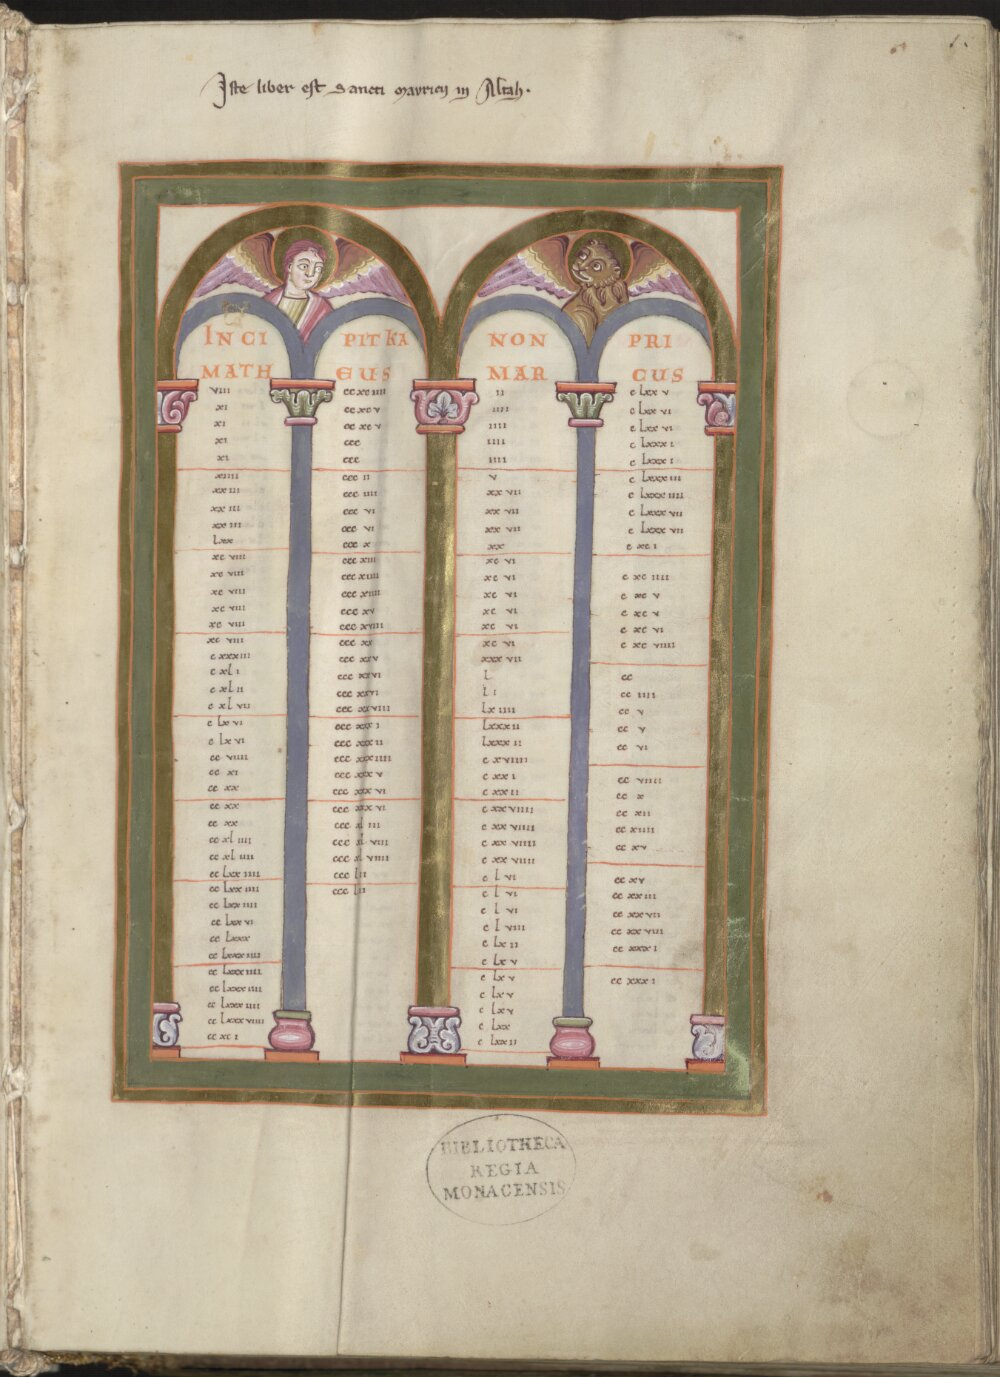 Iste liber est Sancti mavricij in Altah.
INCI PIT KA NON PRI
MATH EUS MAR CUS
viii
xi
xi
xi
xi
xiiii
xx iii
xx iii
xx iii
Lxx
xc viii
xc viii
xc viii
xc viii
xc viii
xc viii
c xxxiii
c xL i
c xL ii
c xL vii
c Lx vi
c Lx vi
cc viiii
cc xi
cc xx
cc xx
cc xx
cc xL iiii
cc xL iiii
cc Lxx iiii
cc Lxx iiii
cc Lxx iiii
cc Lxx vi
cc Lxxx
cc Lxxx iiii
cc Lxxx iiii
cc Lxxx iiii
cc Lxxx iiii
cc Lxxx viiii
cc xc i
cc xc iiii
cc xc v
cc xc v
ccc
ccc
ccc ii
ccc iiii
ccc vi
ccc vi
ccc x
ccc xiii
ccc xiiii
ccc xiiii
ccc xv
ccc xviiii
ccc xx
ccc xxv
ccc xxvi
ccc xxvi
ccc xxviiii
ccc xxx i
ccc xxx ii
ccc xxx iiii
ccc xxx v
ccc xxx vi
ccc xxx vi
ccc xL iii
ccc xL viii
ccc xL viiii
ccc Lii
ccc Lii
ii
iiii
iiii
iiii
iiii
v
xx vii
xx vii
xx vii
xx
xc vi
xc vi
xc vi
xc vi
xc vi
xc vi
xxx vii
L
L i
Lx iiii
Lxxx ii
Lxxx ii
c xviiii
c xx i
c xx ii
c xx viiii
c xx viiii
c xx viiii
c xx viiii
c L vi
c L vi
c L vi
c L viii
c Lx ii
c Lx v
c Lx v
c Lx v
c Lx v
c Lxx
c Lxx ii
c Lxx v
c Lxx vi
c Lxx vi
c Lxxx i
c Lxxx i
c Lxxx iii
c Lxxx iiii
c Lxxx vii
c Lxxx vii
c xc i
c xc iiii
c xc v
c xc v
c xc vi
c xc viiii
cc
cc iiii
cc v
cc v
cc vi
cc viiii
cc x
cc xii
cc xiiii
cc xv
cc xv
cc xx iii
cc xx vii
cc xx viii
cc xxx i
cc xxx i
BIBLIOTHECA
REGIA
MONACENSIS